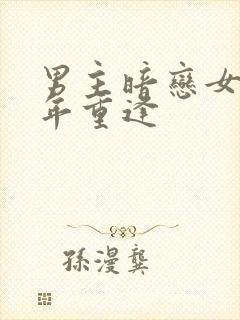 男主暗戀女
年重逢
孫漫龔